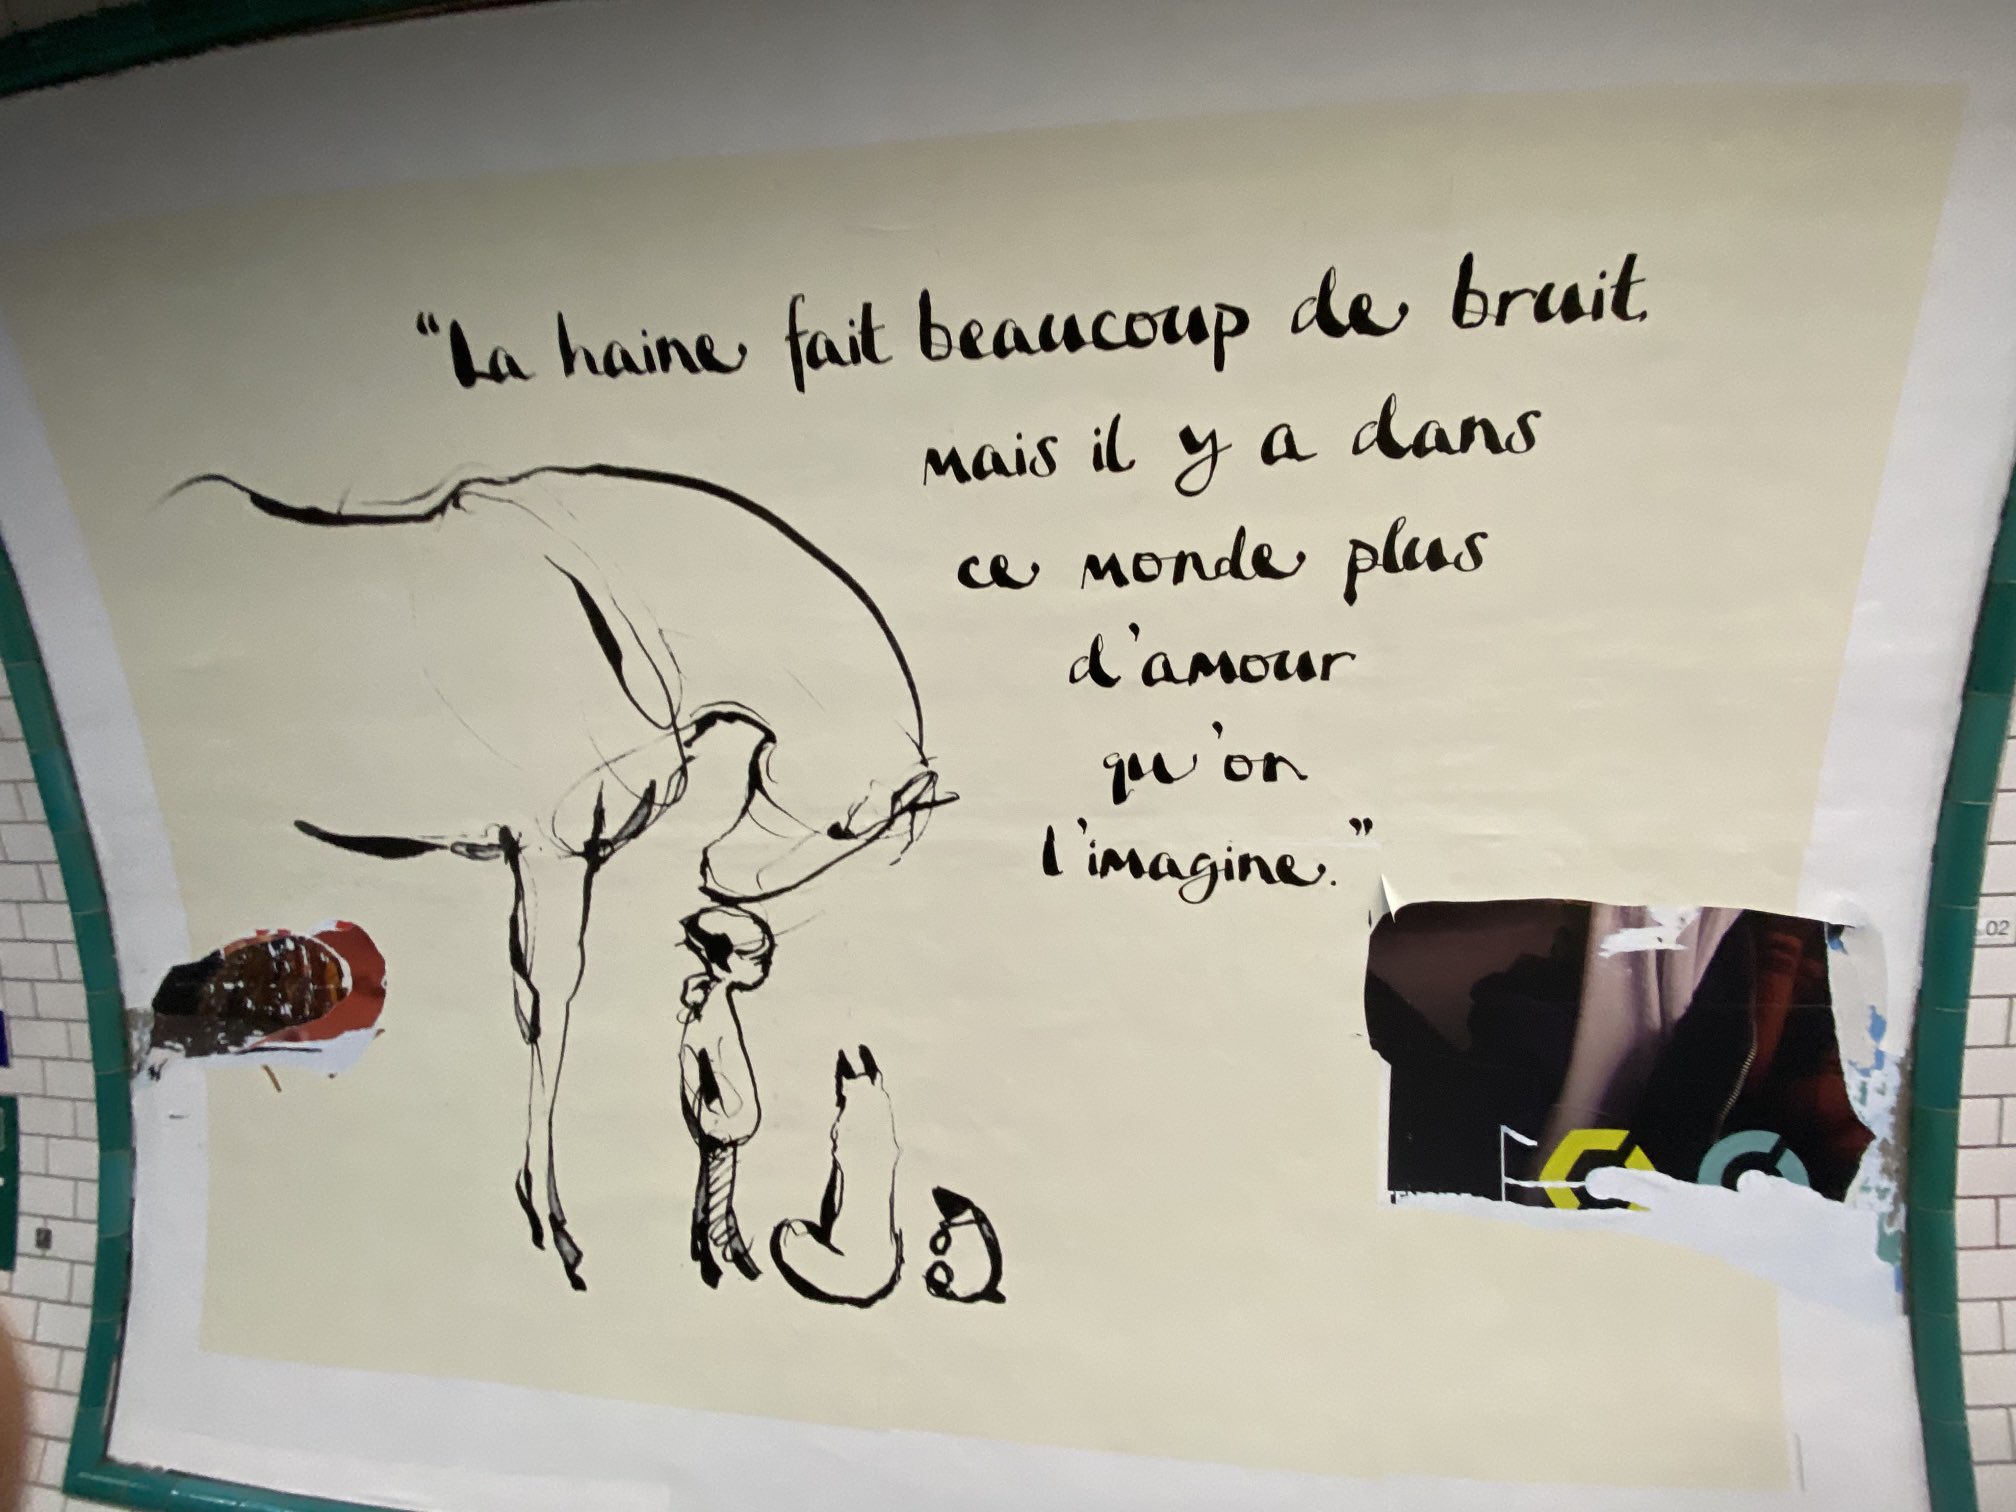 “La haine fait beaucoup de bruit
mais il y a dans
ce monde plus
d'amour
qu'on
l'imagine.”
02